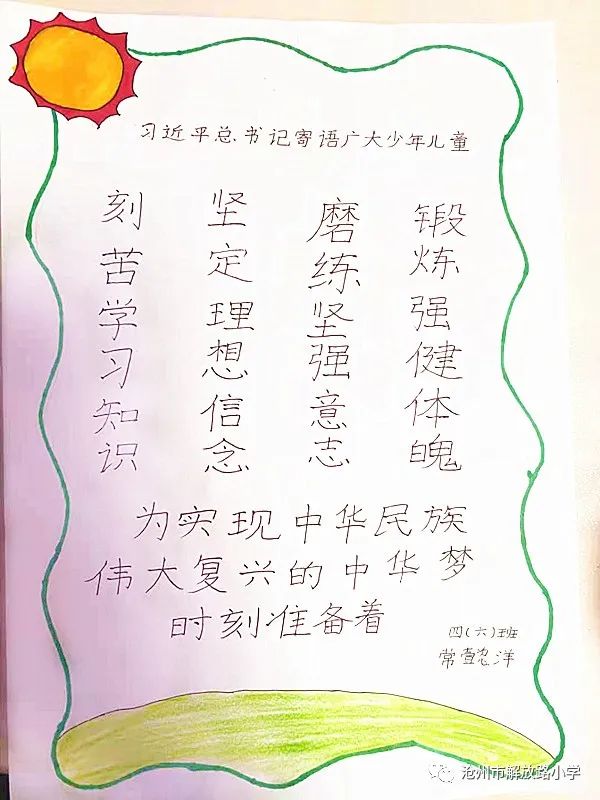 习近平总书记寄语广大少年儿童
刻苦学习知识
坚定理想信念
磨练坚强意志
锻炼强健体魄
为实现中华民族
伟大复兴的中华梦
时刻准备着
四(六)班
常懿洋
沧州市解放路小学